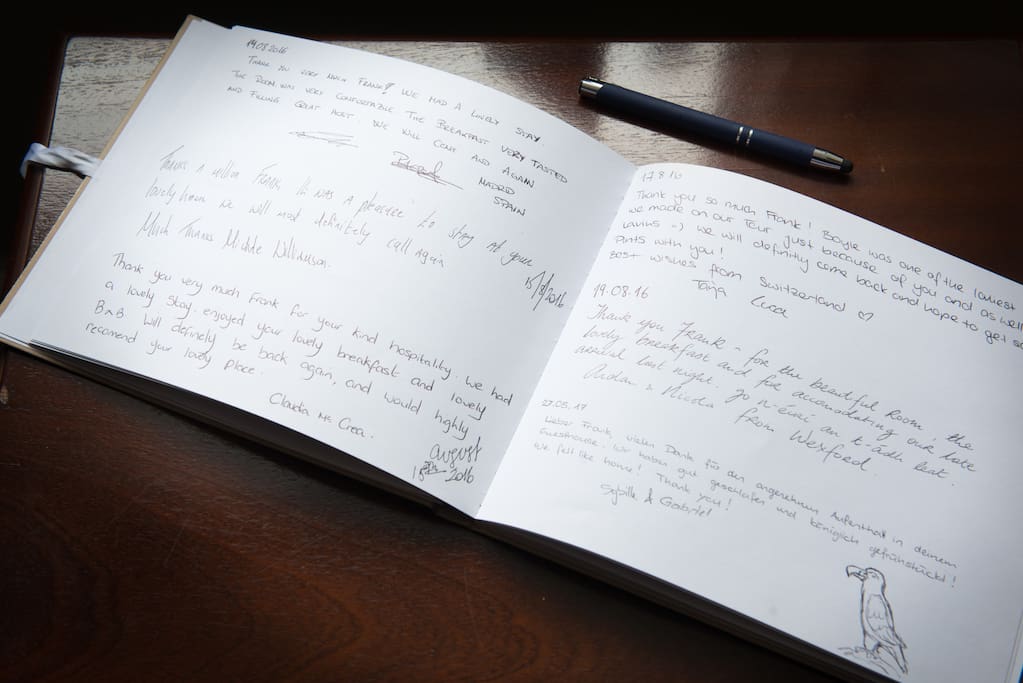 14.08.2016
THANK YOU VERY MUCH FRANK! WE HAD A LOVELY STAY.
THE ROOM WAS VERY CONFORTABLE THE BREAKFAST VERY TASTED
AND FILLING GREAT HOST. WE WILL COME AND AGAIN
MADRID
SPAIN
Thanks a million Frank, It was a pleasure to stay at your
lovely home we will most definitely call again
Much Thanks Michelle Williamson.
15/8/2016
Thank you very much Frank for your kind hospitality. we had
a lovely stay. enjoyed your lovely breakfast and lovely
B&B. Will definely be back again, and would highly
recomend your lovely place.
Claudia Mc Crea.
August
18th 2016
17.8.16
Thank you so much Frank! Boyle was one of the
we made on our Tour just because of you and as well
we will definitly come back and hope to get
Pints with you!
Best wishes from Switzerland ♡
Tanja Luca
19.08.16
Thank you Frank - for the beautiful room, the
lovely breakfast and for accomodating our late
arrival last night. Go n-éirí an t-ádh leat.
Aidan & from Wexford.
27.05.17
Lieber Frank, vielen Dank für den angenehmen Aufenthalt in deinem
Guesthouse. Wir haben gut geschlafen und königlich gefrühstückt!
We felt like home! Thank you!
Sybille & Gabriel